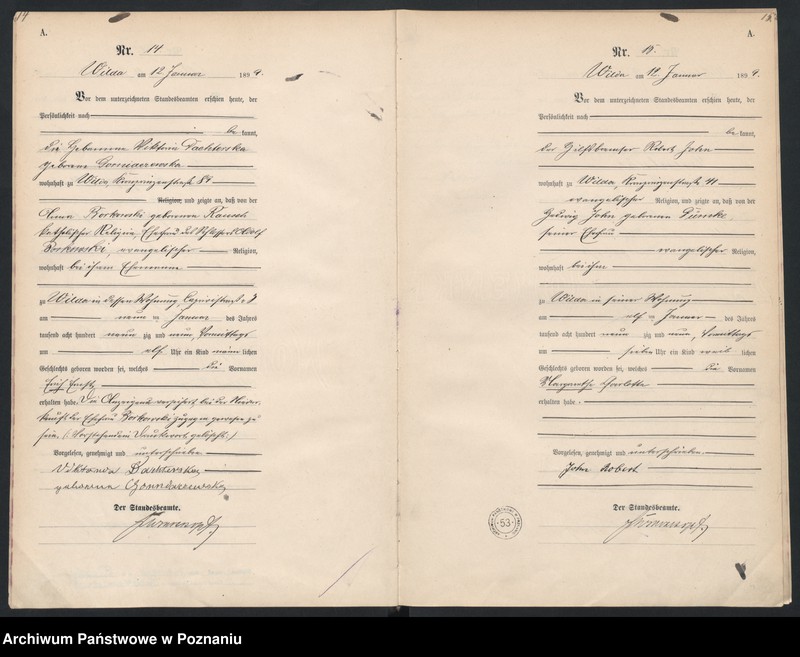 14
A.
Nr. 14
Wilda am 12 Januar 1899.
Vor dem unterzeichneten Standesbeamten erschien heute, der
Persönlichkeit nach
be kannt,
die Hebamme Viktoria
geborene
wohnhaft zu Wilda, Kronprinzenstraße 84
Religion, und zeigte an, daß von der
Anna Borkowski geborenen Rausch
katholischer Religion, Ehefrau des Schlossers Adolf
Borkowski, evangelischer Religion,
wohnhaft bei ihrem Ehemanne
zu Wilda in dessen Wohnung,
am neun ten Januar des Jahres
tausend acht hundert neun zig und neun, Vormittags
um elf Uhr ein Kind männ lichen
Geschlechts geboren worden sei, welches die Vornamen
Erich
erhalten habe. Die Anzeigende versichert, bei der Nieder-
kunft der Ehefrau Borkowski zugegen gewesen zu
sein. (: Vorstehend ein Druckwort gelöscht :)
Vorgelesen, genehmigt und unterschrieben
Viktoria
geborene
Der Standesbeamte.
A.
Nr. 15.
Wilda am 12 Januar 1899.
Vor dem unterzeichneten Standesbeamten erschien heute, der
Persönlichkeit nach
be kannt,
der Hilfsbremser Robert John
wohnhaft zu Wilda, Kronprinzenstraße 41
evangelischer Religion, und zeigte an, daß von der
Hedwig John geborenen
seiner Ehefrau
evangelischer Religion,
wohnhaft bei ihm
zu Wilda in seiner Wohnung
am elf ten Januar des Jahres
tausend acht hundert neun zig und neun, Vormittags
um sieben Uhr ein Kind weib lichen
Geschlechts geboren worden sei, welches die Vornamen
Margarethe Charlotte
erhalten habe.
Vorgelesen, genehmigt und unterschrieben
John Robert
Der Standesbeamte.
53
Archiwum Państwowe w Poznaniu